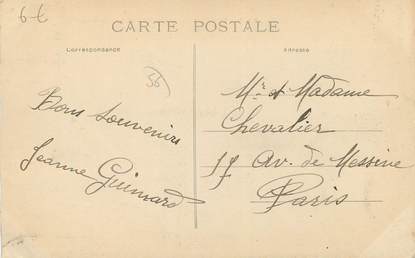 6 €
CARTE POSTALE
Correspondance
Adresse
56
Bons Souvenirs
Jeanne Guimard
Mr et Madame
Chevalier
17 Av. de Messine
Paris